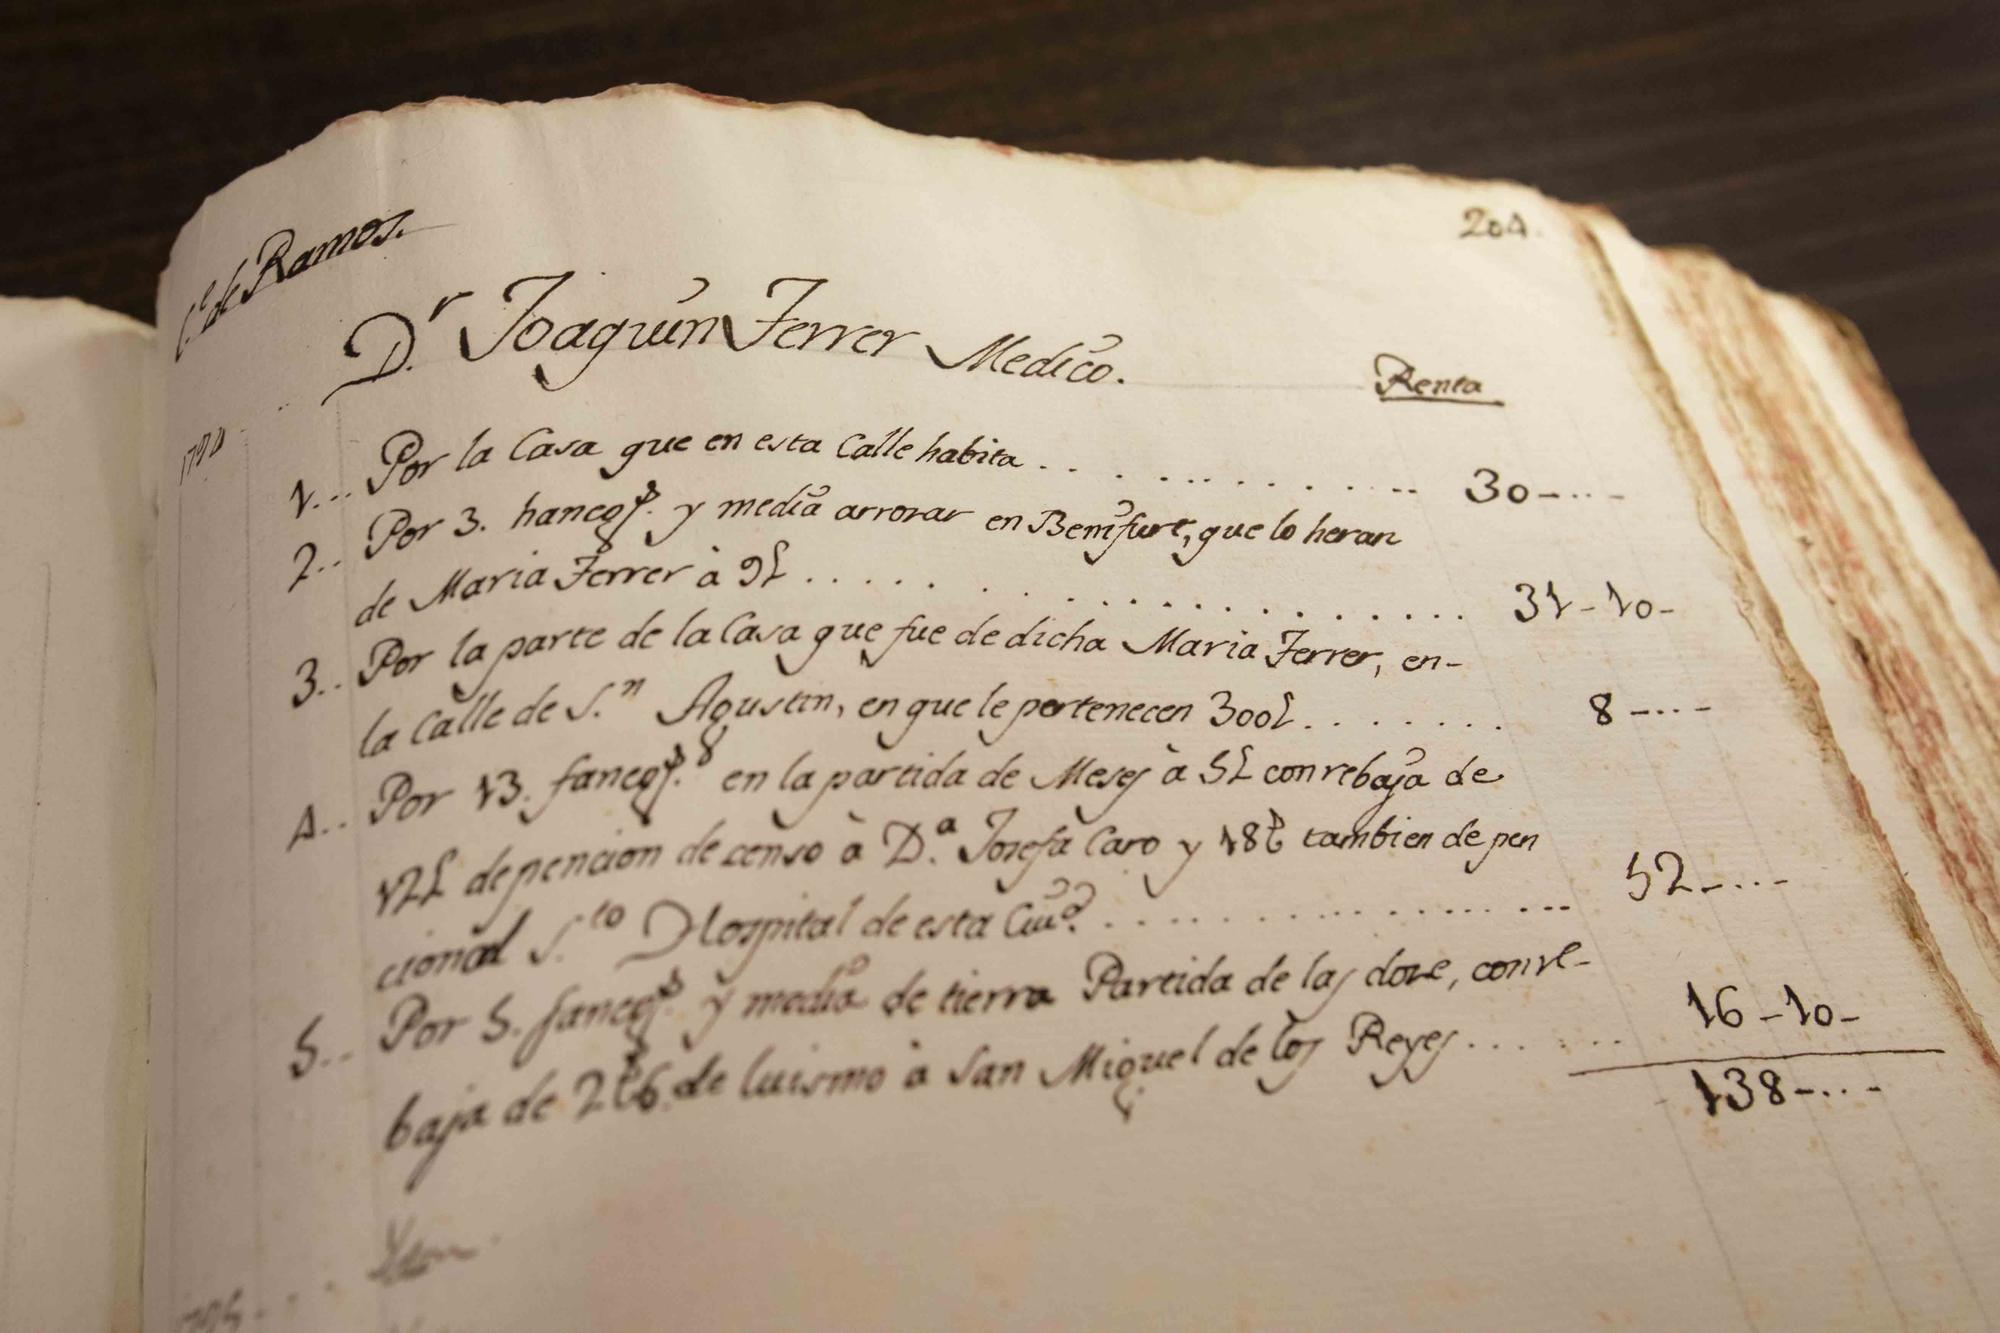 C.e de Ramos.
204.
D.r Joaquin Ferrer Medico.
Renta
1... Por la Casa que en esta Calle habita . . . . . . . . . . . . 30-...-
2.. Por 3. hanegs. y media arrozar en Benifurt, que lo heran
de Maria Ferrer à 9£ . . . . . . . . . . . . . . . . . . 31-10-
3.. Por la parte de la Casa que fue de dicha Maria Ferrer, en-
la Calle de S.n Agustin, en que le pertenecen 300£ . . . . . . . 8-...-
4.. Por 13. fanegs. en la partida de Meses à 5£ con rebaja de
12£ de pencion de censo à D.a Josefa Caro y 18 tambien de pen
cion al S.to Hospital de esta Ciud. . . . . . . . . . . . . . . 52-...-
5.. Por 5. fanegs. y media de tierra Partida de las doze, con re-
baja de 2 6. de luismo à San Miguel de los Reyes . . . . . . . 16-10-
138-...-
1795